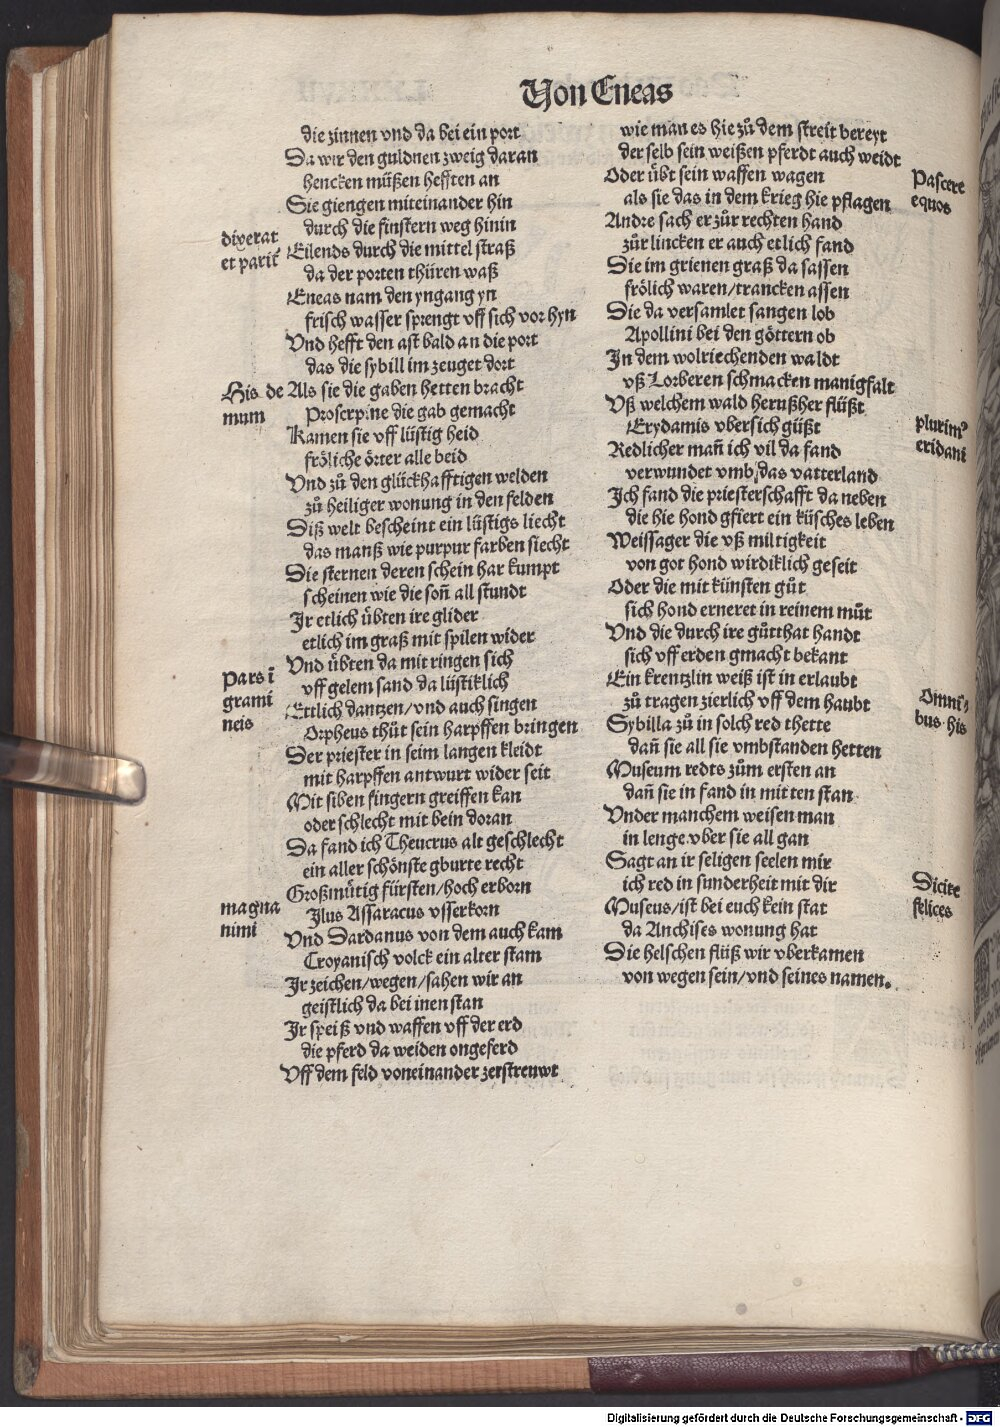 Von Eneas
die zinnen vnd da bei ein port
Da wir den guldnen zweig daran
hencken müßen hefften an
Sie giengen miteinander hin
durch die finstern weg hinin
dixerat
et parit̄
Eilends durch die mittel straß
da der porten thüren waß
Eneas nam den yngang yn
frisch wasser sprengt vff sich vor hyn
Vnd hefft den ast bald an die port
das die sybill im zeuget dort
His de
mum
Als sie die gaben hetten bracht
Proserpine die gab gemacht
Kamen sie vff lüstig heid
fröliche örter alle beid
Vnd zů den glückhafftigen welden
zů heiliger wonung in den felden
Diß welt bescheint ein lüstigs liecht
das manß wie purpur farben siecht
Die sternen deren schein har kumpt
scheinen wie die son̄ all stundt
Ir etlich übten ire glider
etlich im graß mit spilen wider
Vnd übten da mit ringen sich
vff gelem sand da lüstiklich
Pars ī
grami
neis
Ettlich dantzen/vnd auch singen
Orpheus thůt sein harpffen bringen
Der priester in seim langen kleidt
mit harpffen antwurt wider seit
Mit siben fingern greiffen kan
oder schlecht mit bein doran
Da fand ich Theucrus alt geschlecht
ein aller schönste gburte recht
Großmütig fürsten/hoch erborn
Ilus Assaracus vsserkorn
magna
nimi
Vnd Dardanus von dem auch kam
Troyanisch volck ein alter stam
Ir zeichen/wegen/sahen wir an
geistlich da bei inen stan
Ir speiß vnd waffen vff der erd
die pferd da weiden ongeferd
Vff dem feld voneinander zerstreuwt
wie man es hie zů dem streit bereyt
der selb sein weißen pferdt auch weidt
Oder übt sein waffen wagen
als sie das in dem krieg hie pflagen
Pascere
equos
Andre sach er zůr rechten hand
zůr lincken er auch etlich fand
Die im grienen graß da sassen
frölich waren/trancken assen
Die da versamlet sangen lob
Apollini bei den göttern ob
In dem wolriechenden waldt
vß Lorberen schmacken manigfalt
Vß welchem wald herußher flüßt
Erydamis vbersich güßt
plurimꝰ
eridani
Redlicher man̄ ich vil da fand
verwundet vmb das vatterland
Ich fand die priesterschafft da neben
die hie hond gfiert ein küsches leben
Weissager die vß miltigkeit
von got hond wirdiklich geseit
Oder die mit künsten gůt
sich hond erneret in reinem můt
Vnd die durch ire gůtthat handt
sich vff erden gmacht bekant
Ein krentzlin weiß ist in erlaubt
zů tragen zierlich vff dem haubt
Omni
bus his
Sybilla zů in solch red thette
dan̄ sie all sie vmbstanden hetten
Museum redts zům ersten an
dan̄ sie in fand in mitten stan
Vnder manchem weisen man
in lenge vber sie all gan
Sagt an ir seligen seelen mir
ich red in sunderheit mit dir
Dicite
felices
Museus/ist bei euch kein stat
da Anchises wonung hat
Die helschen flüß wir vberkamen
von wegen sein/vnd seines namen.
Digitalisierung gefördert durch die Deutsche Forschungsgemeinschaft - DFG